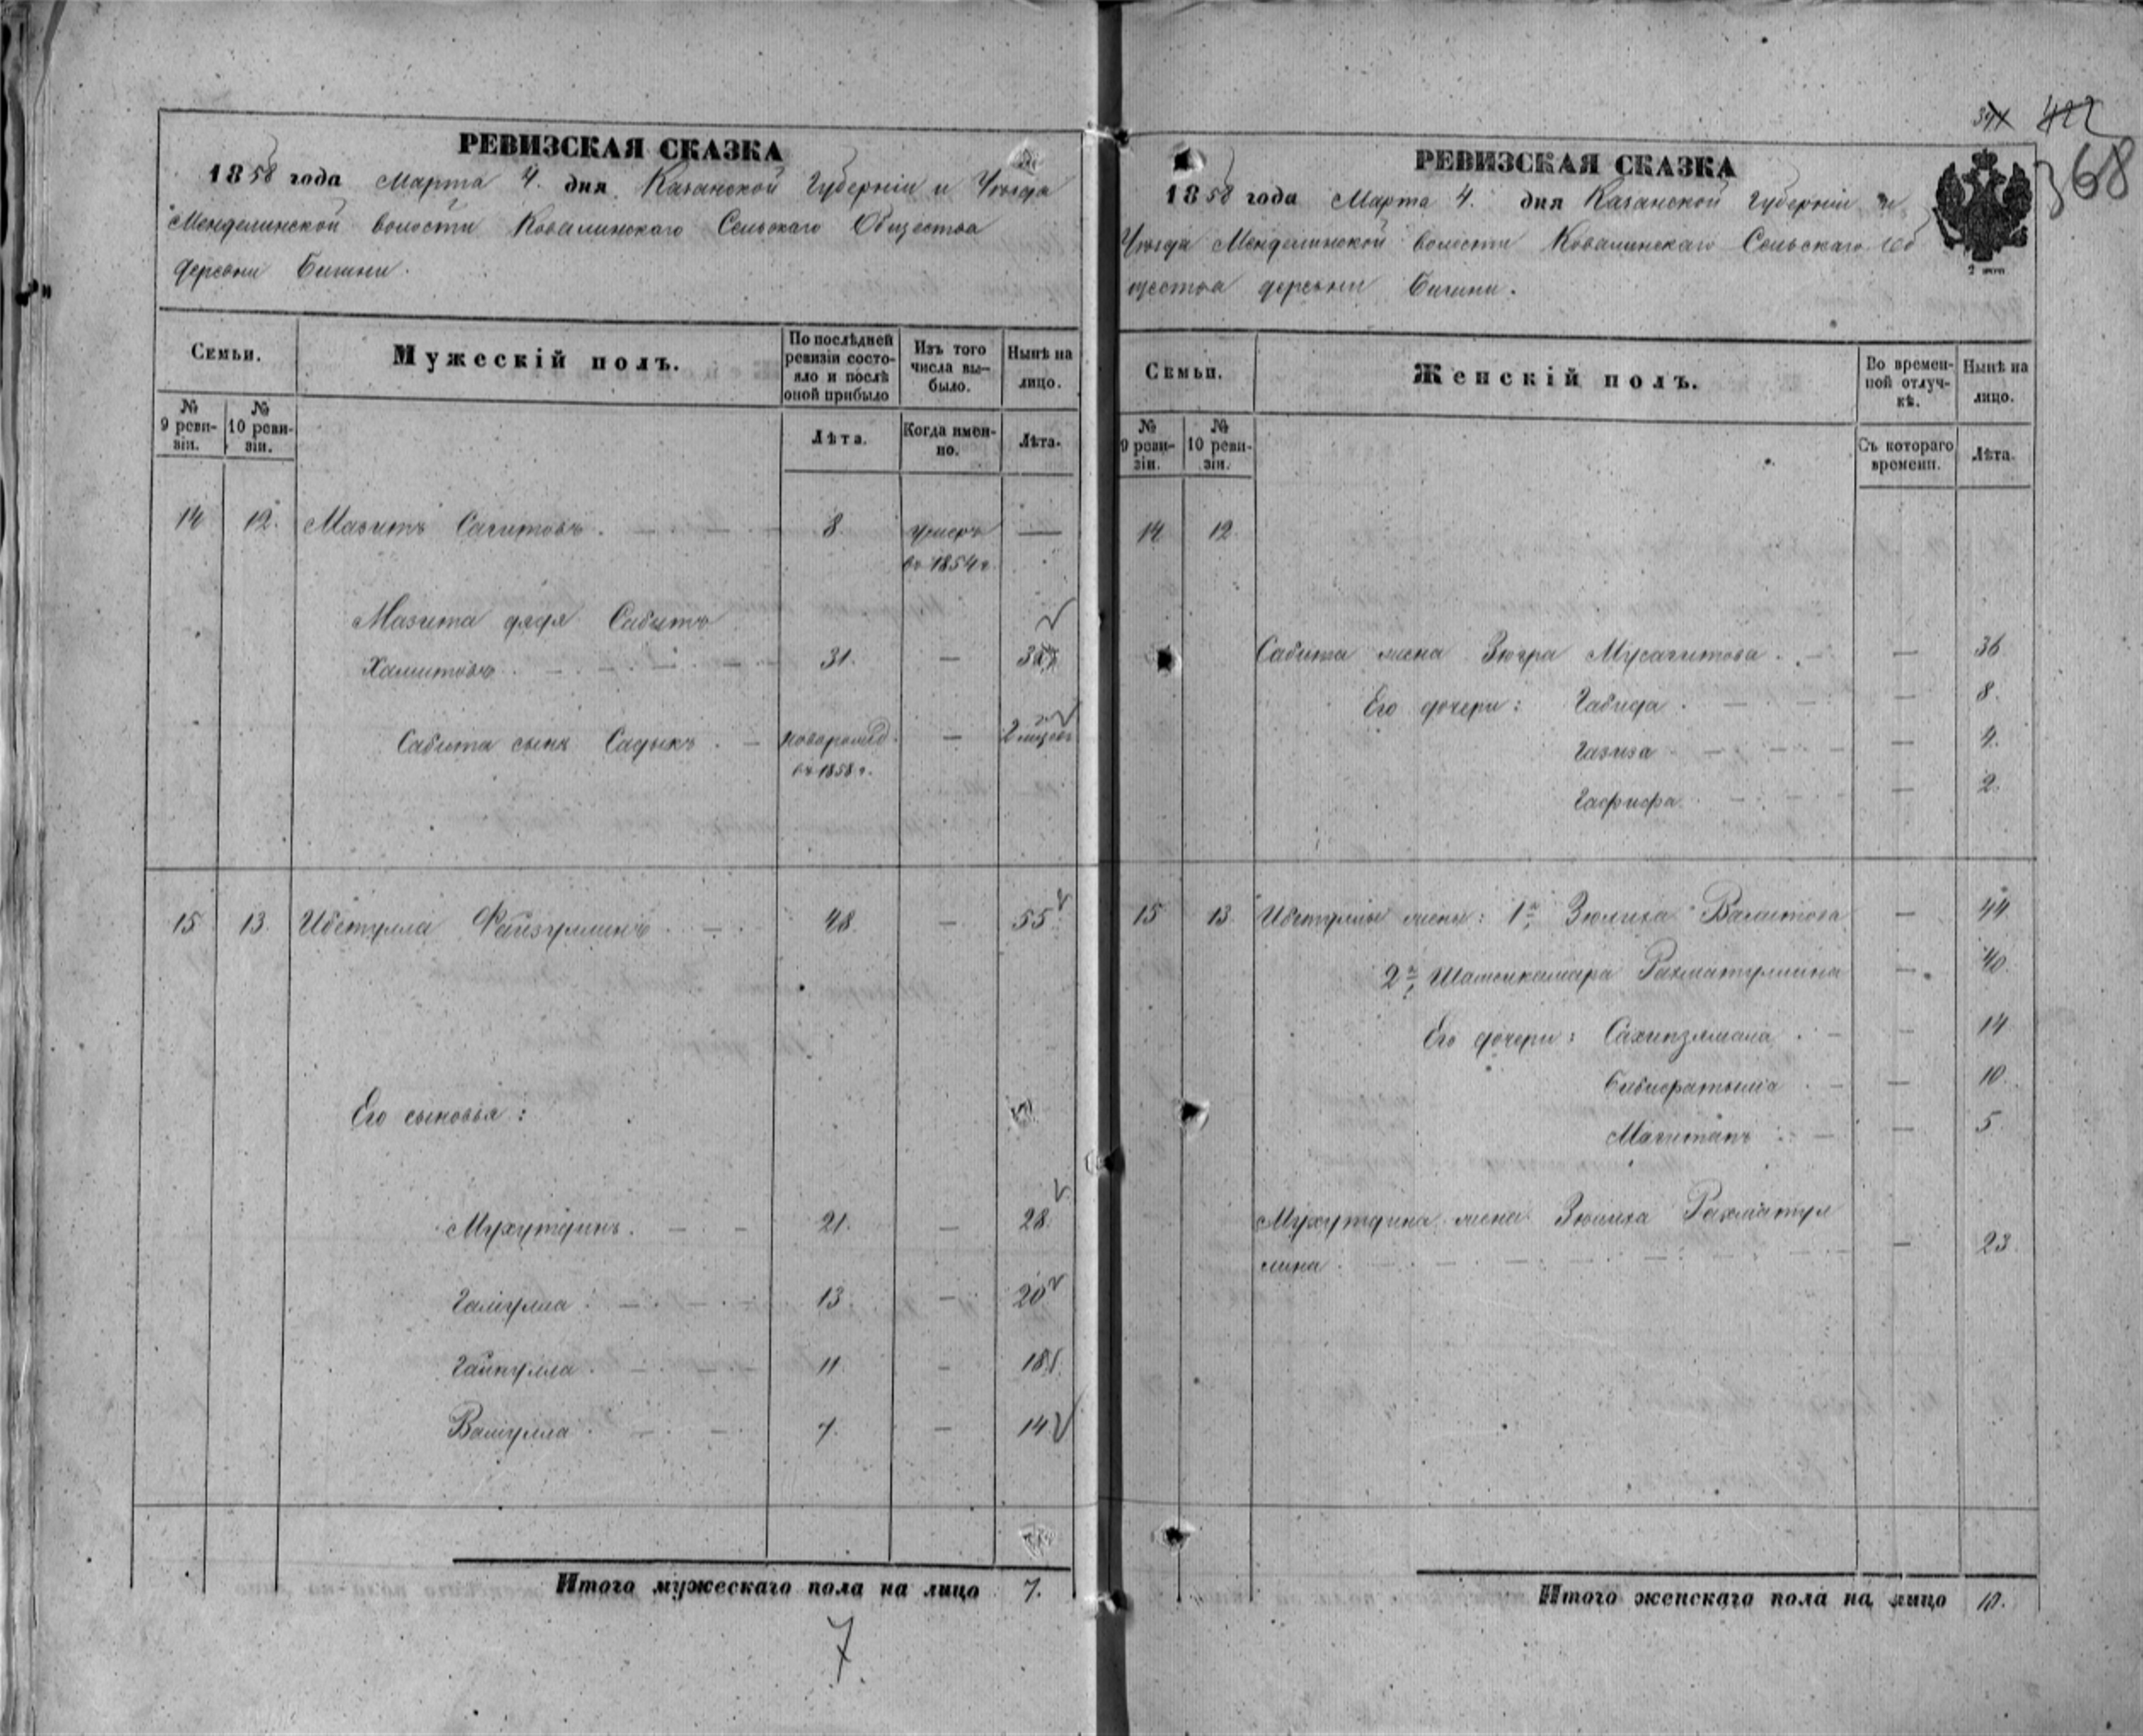 РЕВИЗСКАЯ СКАЗКА
1858 года Марта 4. дня Казанской Губерніи и Уезда
Менделинской волости Ковалинскаго Сельскаго Общества
деревни Бигини.
Семьи.
Мужескій полъ.
По послѣдней ревизіи состояло и послѣ оной прибыло
Изъ того числа выбыло.
Нынѣ на лицо.
№ 9 ревизіи.
№ 10 ревизіи.
Лѣта.
Когда именно.
Лѣта.
14 12. Мазитъ Сагитовъ. 8. умеръ —
въ 1854 г.
Мазита дядя Сабитъ
Хамитовъ 31. —
Сабита сынъ Садыкъ. новорожд. — 2
въ 1858 г.
15 13. Ибетулла Файзуллинъ 48. — 55
Его сыновья:
Мухутдинъ. 21. — 28.
Галіулла 13. — 20
Гайнулла 11. — 18.
Валіулла 7. — 14
Итого мужескаго пола на лицо 7.
7.
422
368
РЕВИЗСКАЯ СКАЗКА
1858 года Марта 4. дня Казанской Губерніи и
Уезда Менделинской волости Ковалинскаго Сельскаго Об
щества деревни Бигини.
2 коп
Семьи.
Женскій полъ.
Во временной отлучкѣ.
Нынѣ на лицо.
№ 9 ревизіи.
№ 10 ревизіи.
Съ котораго времени.
Лѣта.
14 12
Сабита жена Зюгра Мусагитова — 36
Его дочери: Габида — 8.
Газиза — 4.
Гафифа — 2.
15 13. Ибетуллы жены: 1я Зюлиха Валитова — 44
2я Шамсикамара Рахматуллина — 40.
Его дочери: Сахипзямала — 14
Бибифатыма — 10.
Магитапъ — 5
Мухутдина жена Зюлиха Рахматул
лина — 23.
Итого женскаго пола на лицо 10.